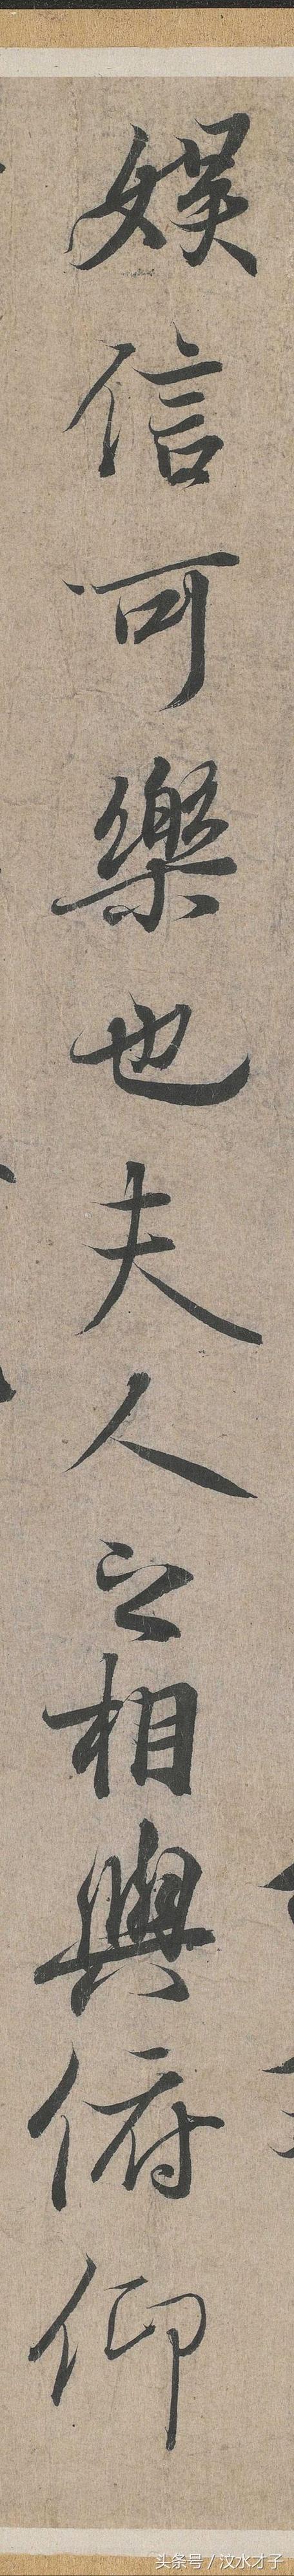 娛信可樂也夫人之相與俯仰
头条号／汶水才子